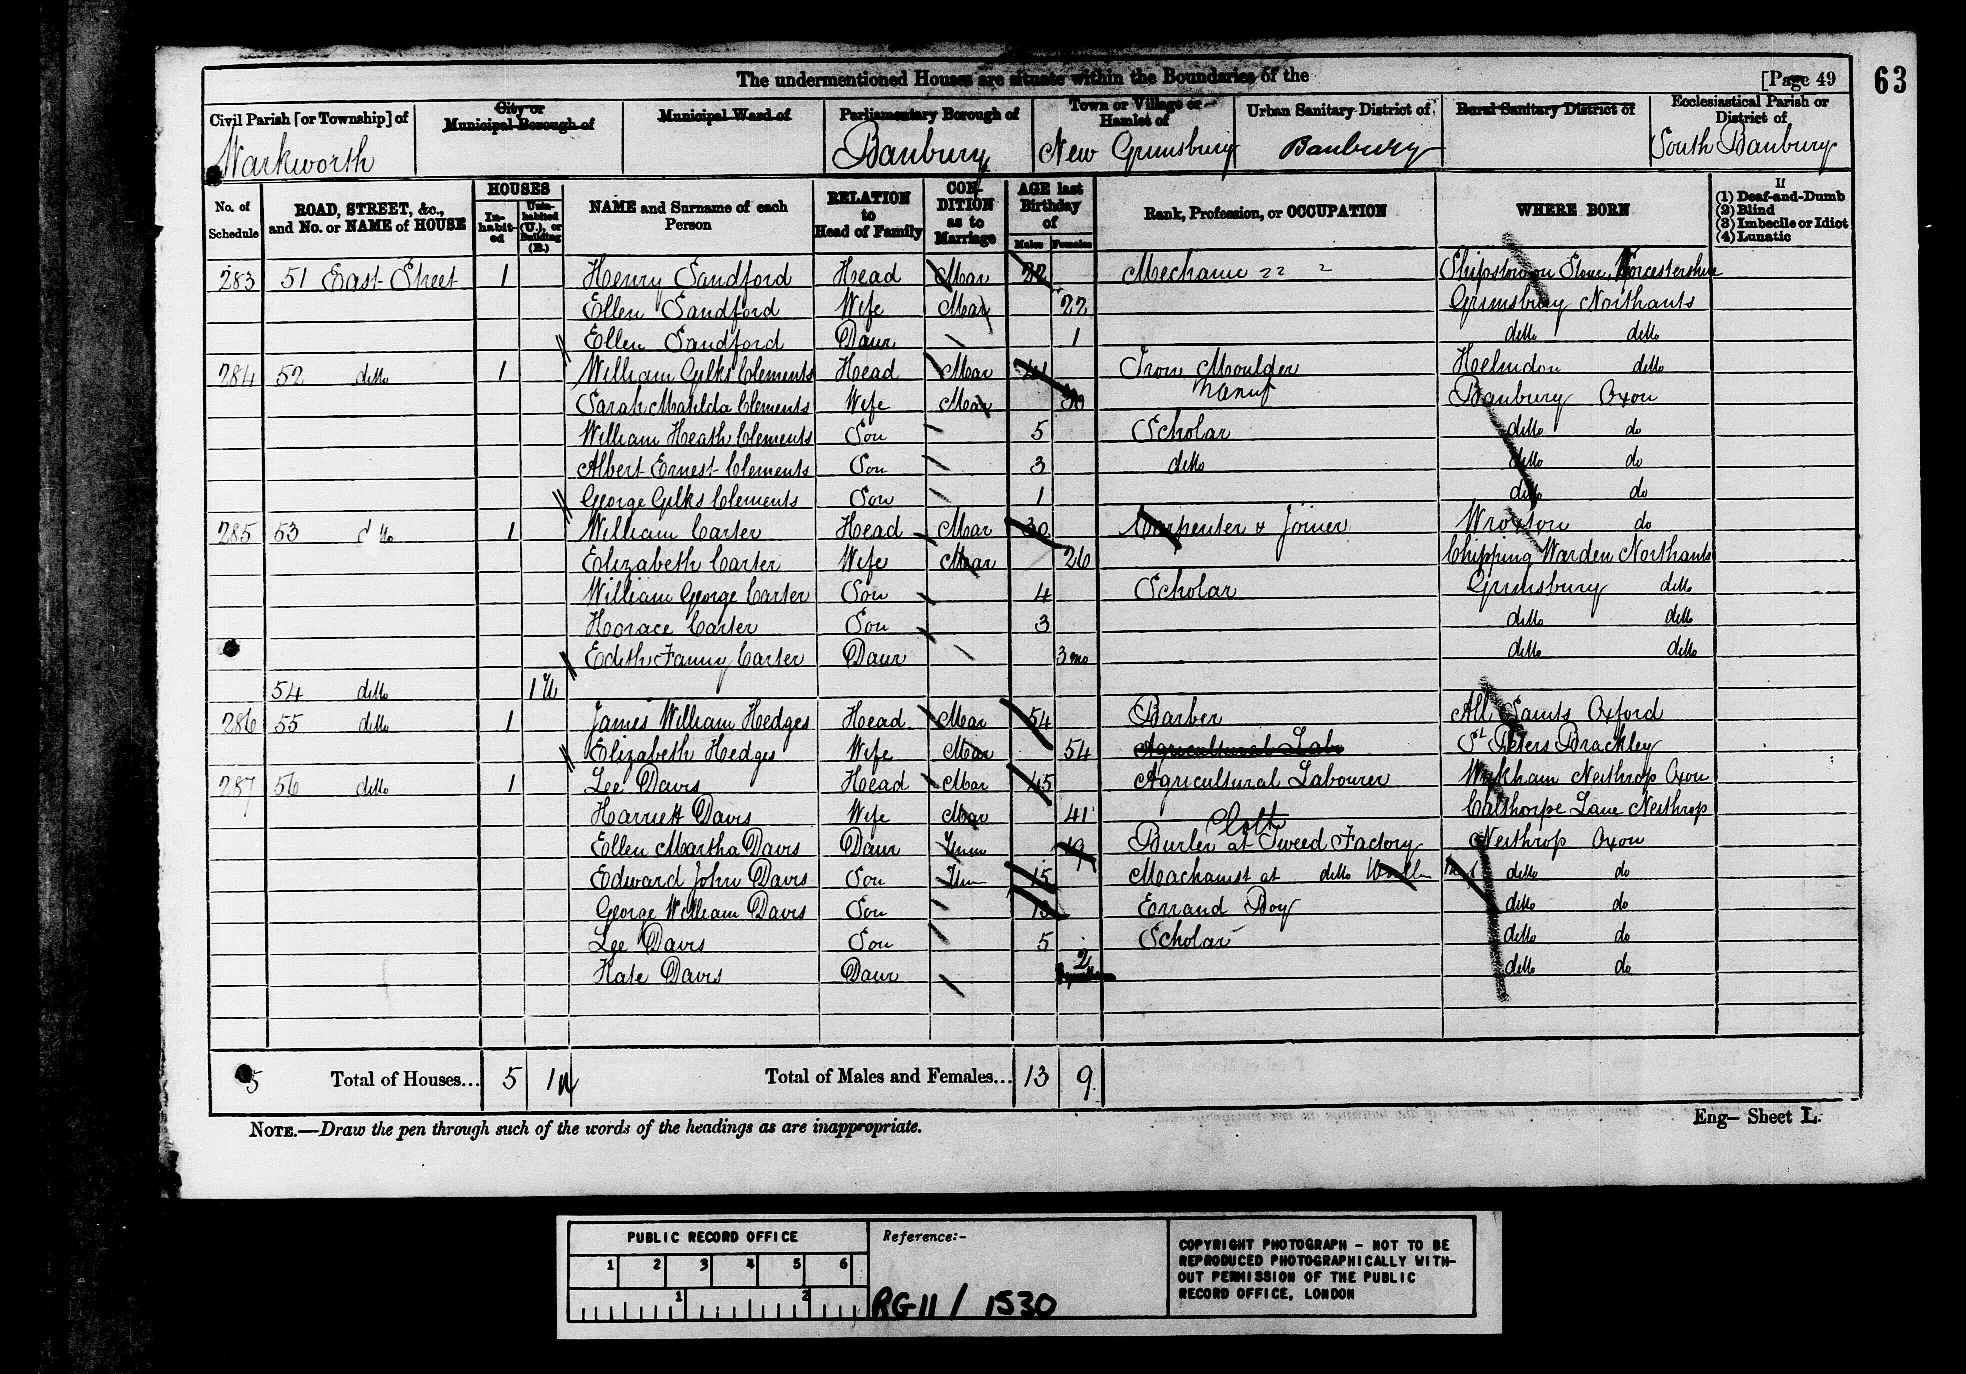 The undermentioned Houses are situate within the Boundaries of the [Page 49 63
Civil Parish [or Township] of City or Municipal Borough of Municipal Ward of Parliamentary Borough of Town or Village or Hamlet of Urban Sanitary District of Rural Sanitary District of Ecclesiastical Parish or District of
Warkworth Banbury New Grimsbury Banbury South Banbury
No. of Schedule ROAD, STREET, &c., and No. or NAME of HOUSE HOUSES In-habit-ed Unin-habited (U.), or Building (B.) NAME and Surname of each Person RELATION to Head of Family CON-DITION as to Marriage AGE last Birthday of Males Females Rank, Profession, or OCCUPATION WHERE BORN If (1) Deaf-and-Dumb (2) Blind (3) Imbecile or Idiot (4) Lunatic
283 51 East Street 1 Henry Sandford Head Mar 22 Mechanic Shipston on Stour, Worcestershire
Ellen Sandford Wife Mar 22 Grimsbury Northants
Ellen Sandford Daur 1 ditto ditto
284 52 ditto 1 William Gilks Clements Head Mar Iron Moulder Helmdon ditto
Manuf
Sarah Matilda Clements Wife Mar Banbury Oxon
William Heath Clements Son 5 Scholar ditto do
Albert Ernest Clements Son 3 ditto ditto do
George Gilks Clements Son 1 ditto do
285 53 ditto 1 William Carter Head Mar 30 Carpenter & Joiner Wroxton do
Elizabeth Carter Wife Mar 26 Chipping Warden Northants
William George Carter Son 4 Scholar Grimsbury ditto
Horace Carter Son 3 ditto ditto
Edith Fanny Carter Daur 3 mo ditto ditto
54 ditto 1 U
286 55 ditto 1 James William Hedges Head Mar 54 Barber All Saints Oxford
Elizabeth Hedges Wife Mar 54 Agricultural Lab St Peters Brackley
287 56 ditto 1 Lee Davis Head Mar 45 Agricultural Labourer Wykham Neithrop Oxon
Harriett Davis Wife Mar 41 Calthorpe Lane Neithrop
Cloth
Ellen Martha Davis Daur Unm 19 Burler at Tweed Factory Neithrop Oxon
Edward John Davis Son Un 15 Machanist at ditto ditto do
George William Davis Son 13 Errand Boy ditto do
Lee Davis Son 5 Scholar ditto do
Kate Davis Daur 2 ditto do
5 Total of Houses... 5 1 U Total of Males and Females... 13 9
NOTE.—Draw the pen through such of the words of the headings as are inappropriate. Eng— Sheet L.
PUBLIC RECORD OFFICE
1 2 3 4 5 6
1 2
Reference:-
RG11 / 1530
COPYRIGHT PHOTOGRAPH - NOT TO BE
REPRODUCED PHOTOGRAPHICALLY WITH-
OUT PERMISSION OF THE PUBLIC
RECORD OFFICE, LONDON